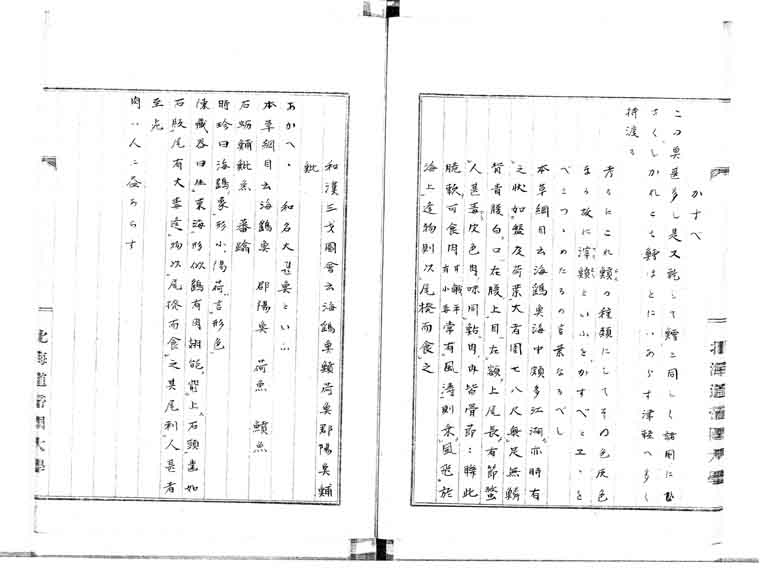 かすべ
この魚甚多し是又乾して鱠ニ同しく諸用に
さくしかれとも鱈ほとにハあらす津軽へ多く
持渡る
考るにこれ鱝の種類にしてその色灰色
なる故に滓鱝といふをかすべとエ と
べこつゝめたるの言葉なるべし
本草綱目云海鷂魚海中頗多江湖亦時有
之状如盤及荷葉大者囲七八尺無足無鱗
背青腹白口在腹下目在額上尾長有節螫
人甚毒皮色肉味同鮎肉内皆骨節聯比
脆軟可食
常有風濤則乗風飛於
海上逢物則以尾撥而食之
和漢三才図会云海鷂魚鱝荷魚邵陽魚鯆
魮
あかへ 和名大 魚といふ
本草綱目云海鷂魚 邵陽魚 荷魚 鱝魚
石蛎 鯆魮魚 蕃踰
時珍曰海鷂象形小陽荷言形色
陳蔵器曰生東海形似鷂有肉翅能 上石頭歯如
石版尾有大毒逢物以尾撥而食之其尾刺人甚者
至死
肉ハ人ニ益あらす
北海道帝国大学
北海道帝国大学